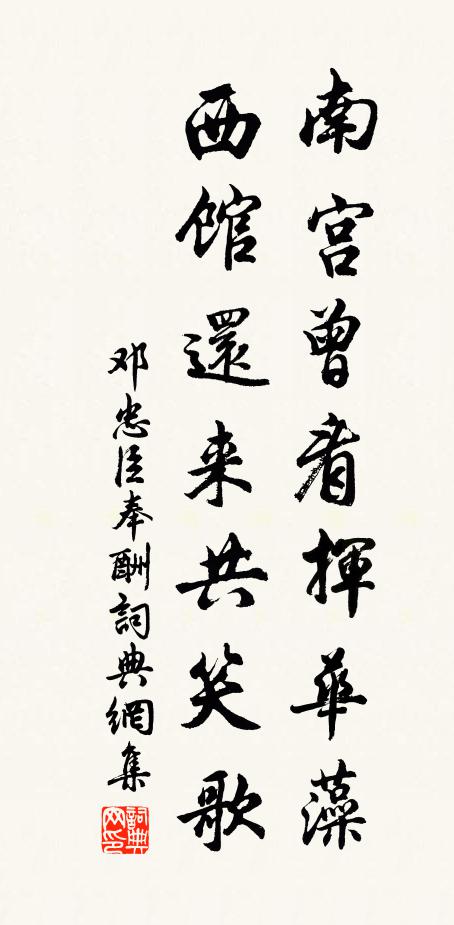 南宫曾看揮華藻
西館還来共笑歌
邓忠臣奉酬詞典網集
詞典网印